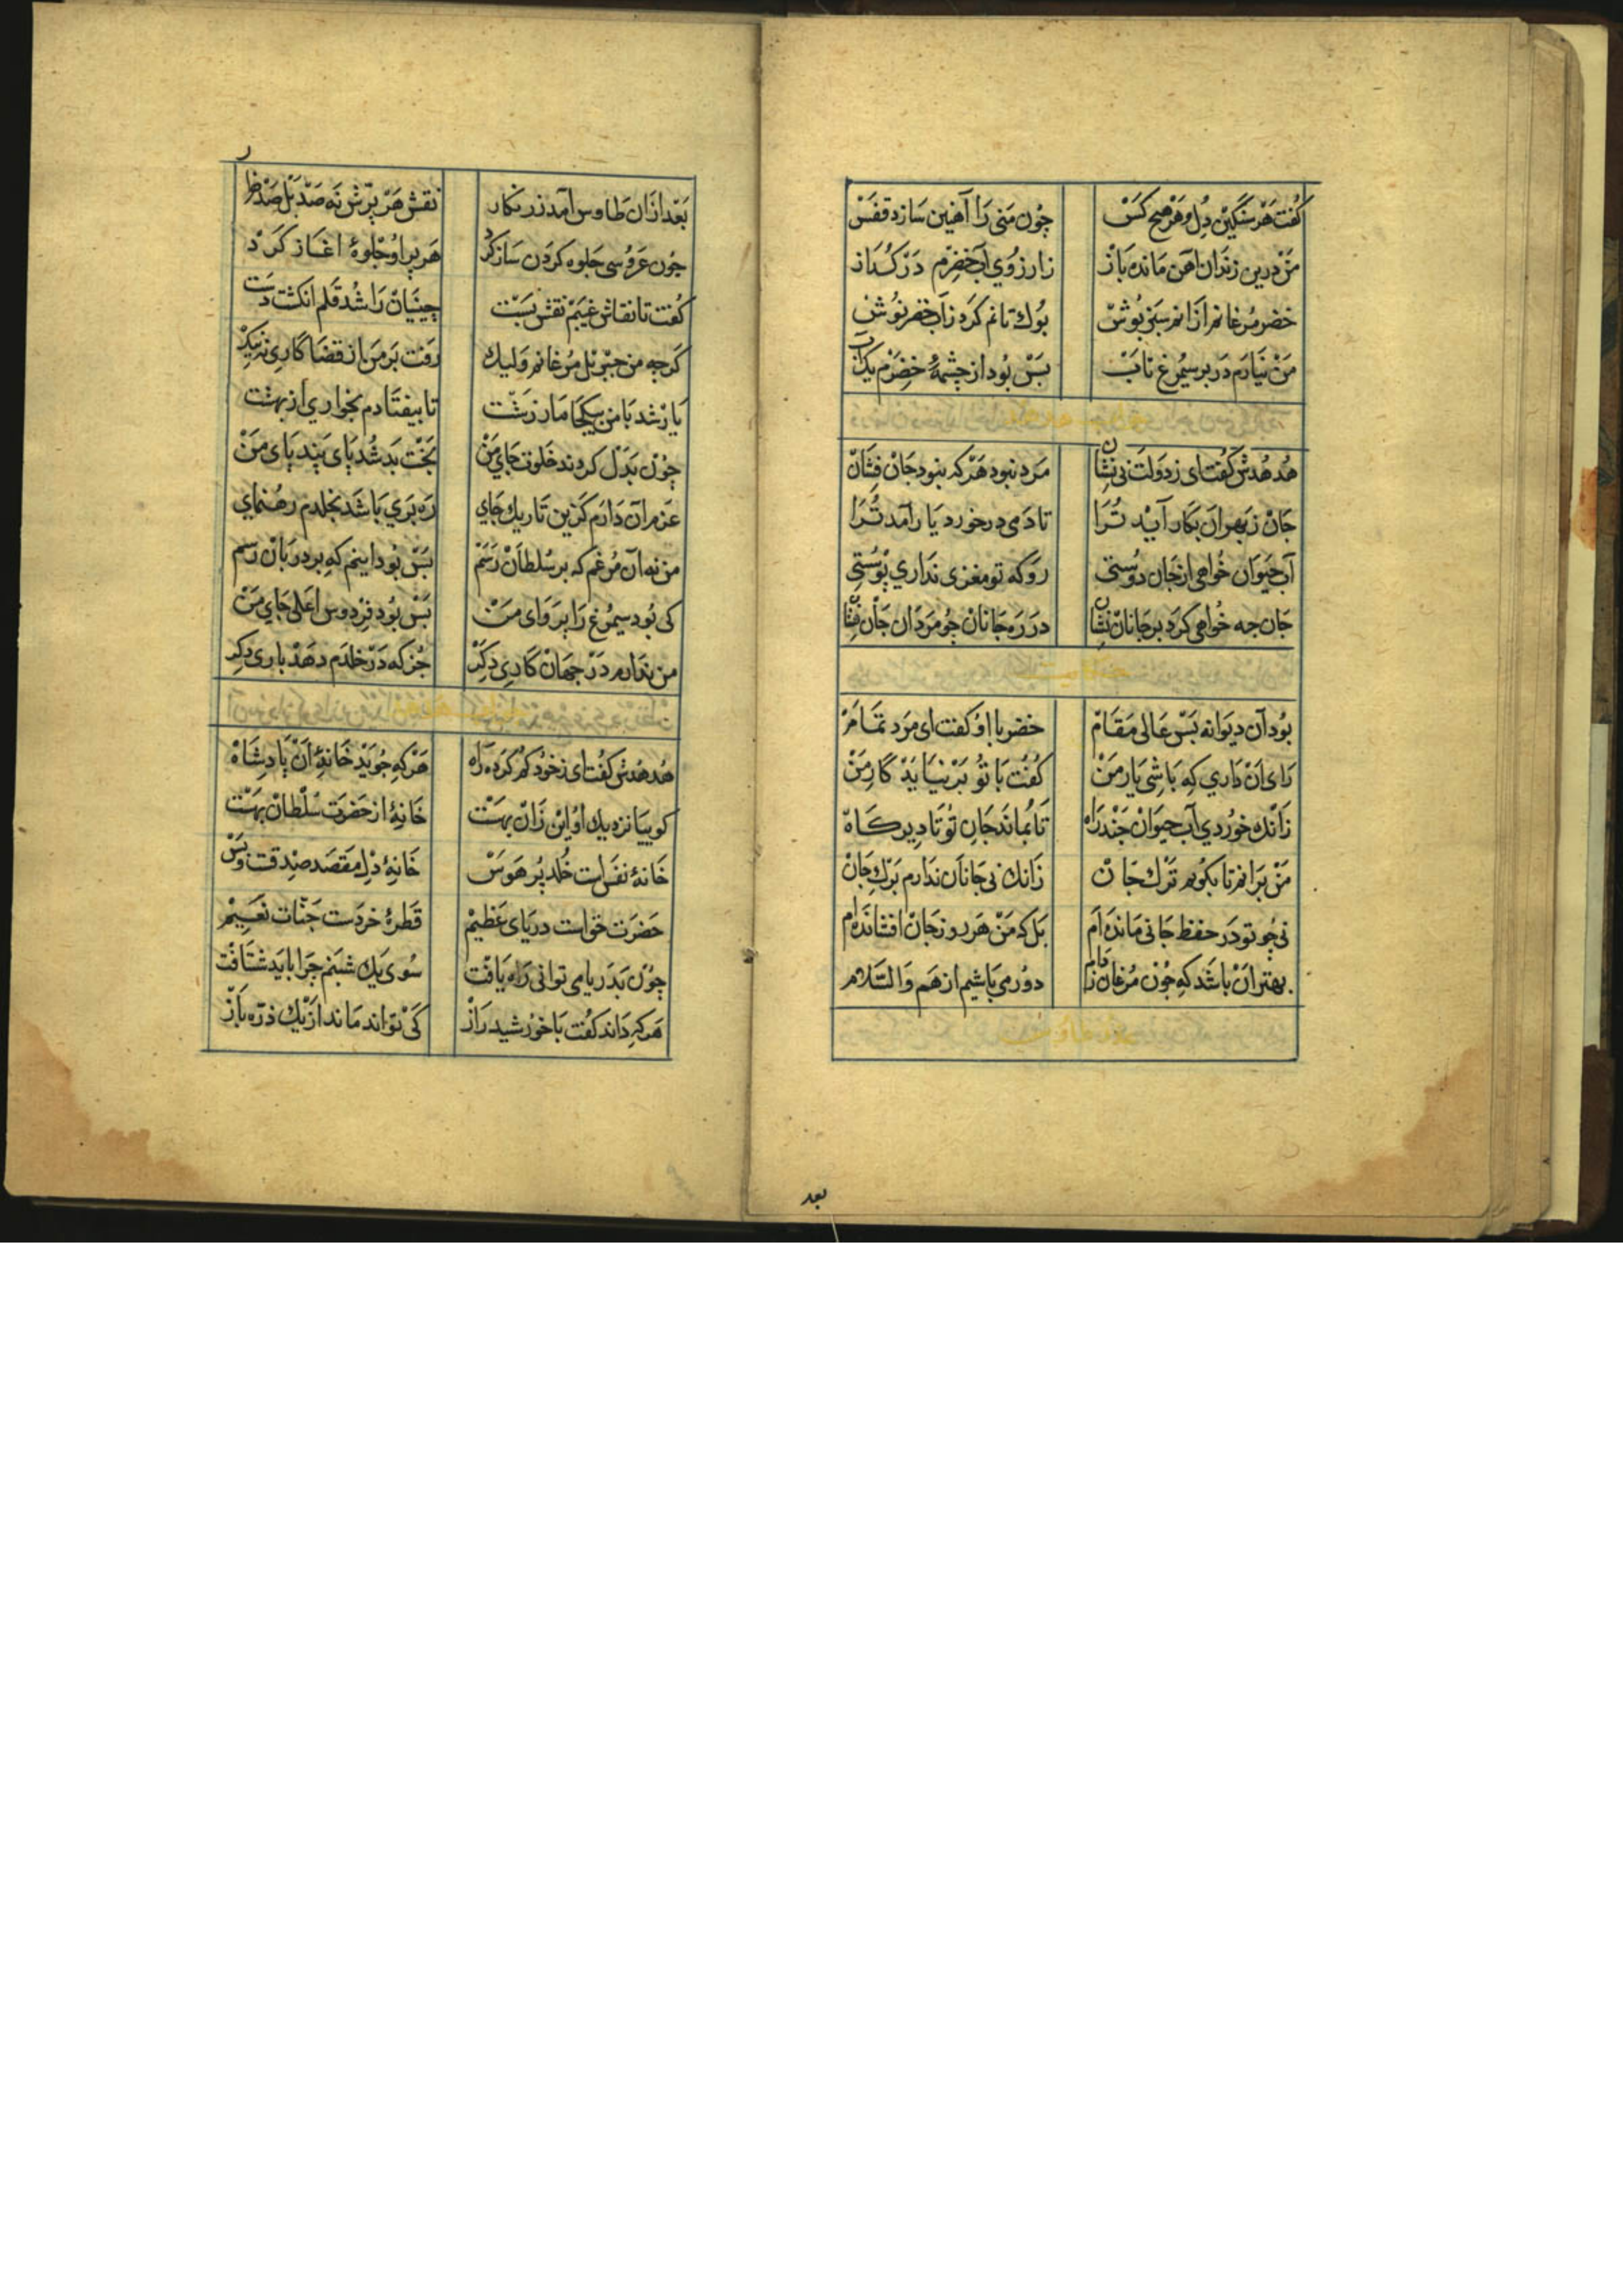 كفت هر سنكين دل و هر هيچ كس چون منى را آهنين سازد قفس
من درين زندان آهن مانده باز زارزوي آب خضرم در كداز
خضر مرغانم ازانم سبز پوش بوك تانم كرد زآب خضر نوش
من نيارم در بر سيمرغ تاب بس بود از چشمهٔ خضرم يك آب
هدهدش كفت اى ز دولت بى نشان مرد نبود هركه نبود جان فشان
جان ز بهر ان بكار آيد ترا تا دمى در خورد يار آمد ترا
آب حيوان خواهى از جان دوستى رو كه تو مغزى نداري پوستى
جان چه خواهى كرد بر جانان نشان در ره جانان چو مردان جان فشان
بود آن ديوانه بس عالى مقام خضر با او كفت اى مرد تمام
راى ان داري كه باشى يار من كفت با تو بر نيايد كار من
زانك خوردي آب حيوان چند راه تا بماند جان تو تا ديركاه
من برانم تا بكويم ترك جان زانك بى جانان ندارم برك جان
نى چو تو در حفظ جانى مانده ام بلكه من هر روز جان افشانده ام
بهتر ان باشد كه چون مرغان ز دام دور مى باشيم از هم والسلام
بعد
بعد ازان طاوس آمد زرنكار نقش هر پرش نه صد بل صد هزار
چون عروسى جلوه كردن ساز كرد هر پر او جلوهٔ اغاز كرد
كفت تا نقاش غيبم نقش بست چينيان را شد قلم انكشت دست
كرچه من جبريل مرغانم وليك رفت بر من از قضا كارى نه نيك
يار شد با من بيكجا مار زشت تا بيفتادم بخواري از بهشت
چون بدل كردند خلوت جاي من تخت بند شد پاى بند پاى من
عزم آن دارم كزين تاريك جاي ره بري باشد بخلدم رهنماي
من نه آن مرغم كه بر سلطان رسم بس بود اينم كه بر دربان رسم
كى بود سيمرغ را پرواى من بس بود فردوس اعلى جاي من
من ندارم در جهان كارى دكر جز كه در خلدم دهد بارى دكر
هدهدش كفت اى ز خود كم كرده راه هركه جويد خانهٔ ان پادشاه
كوبيا نزديك او اين زان بهست خانهٔ از حضرت سلطان بهست
خانهٔ نفس است خلد پر هوس خانهٔ دل مقصد صدقست وبس
حضرت حق است درياى عظيم قطرهٔ خردست جنات نعيم
چون بدريا مى توانى راه يافت سوى يك شبنم چرا بايد شتافت
هركه داند كفت با خورشيد راز كى تواند ماند از يك ذره باز